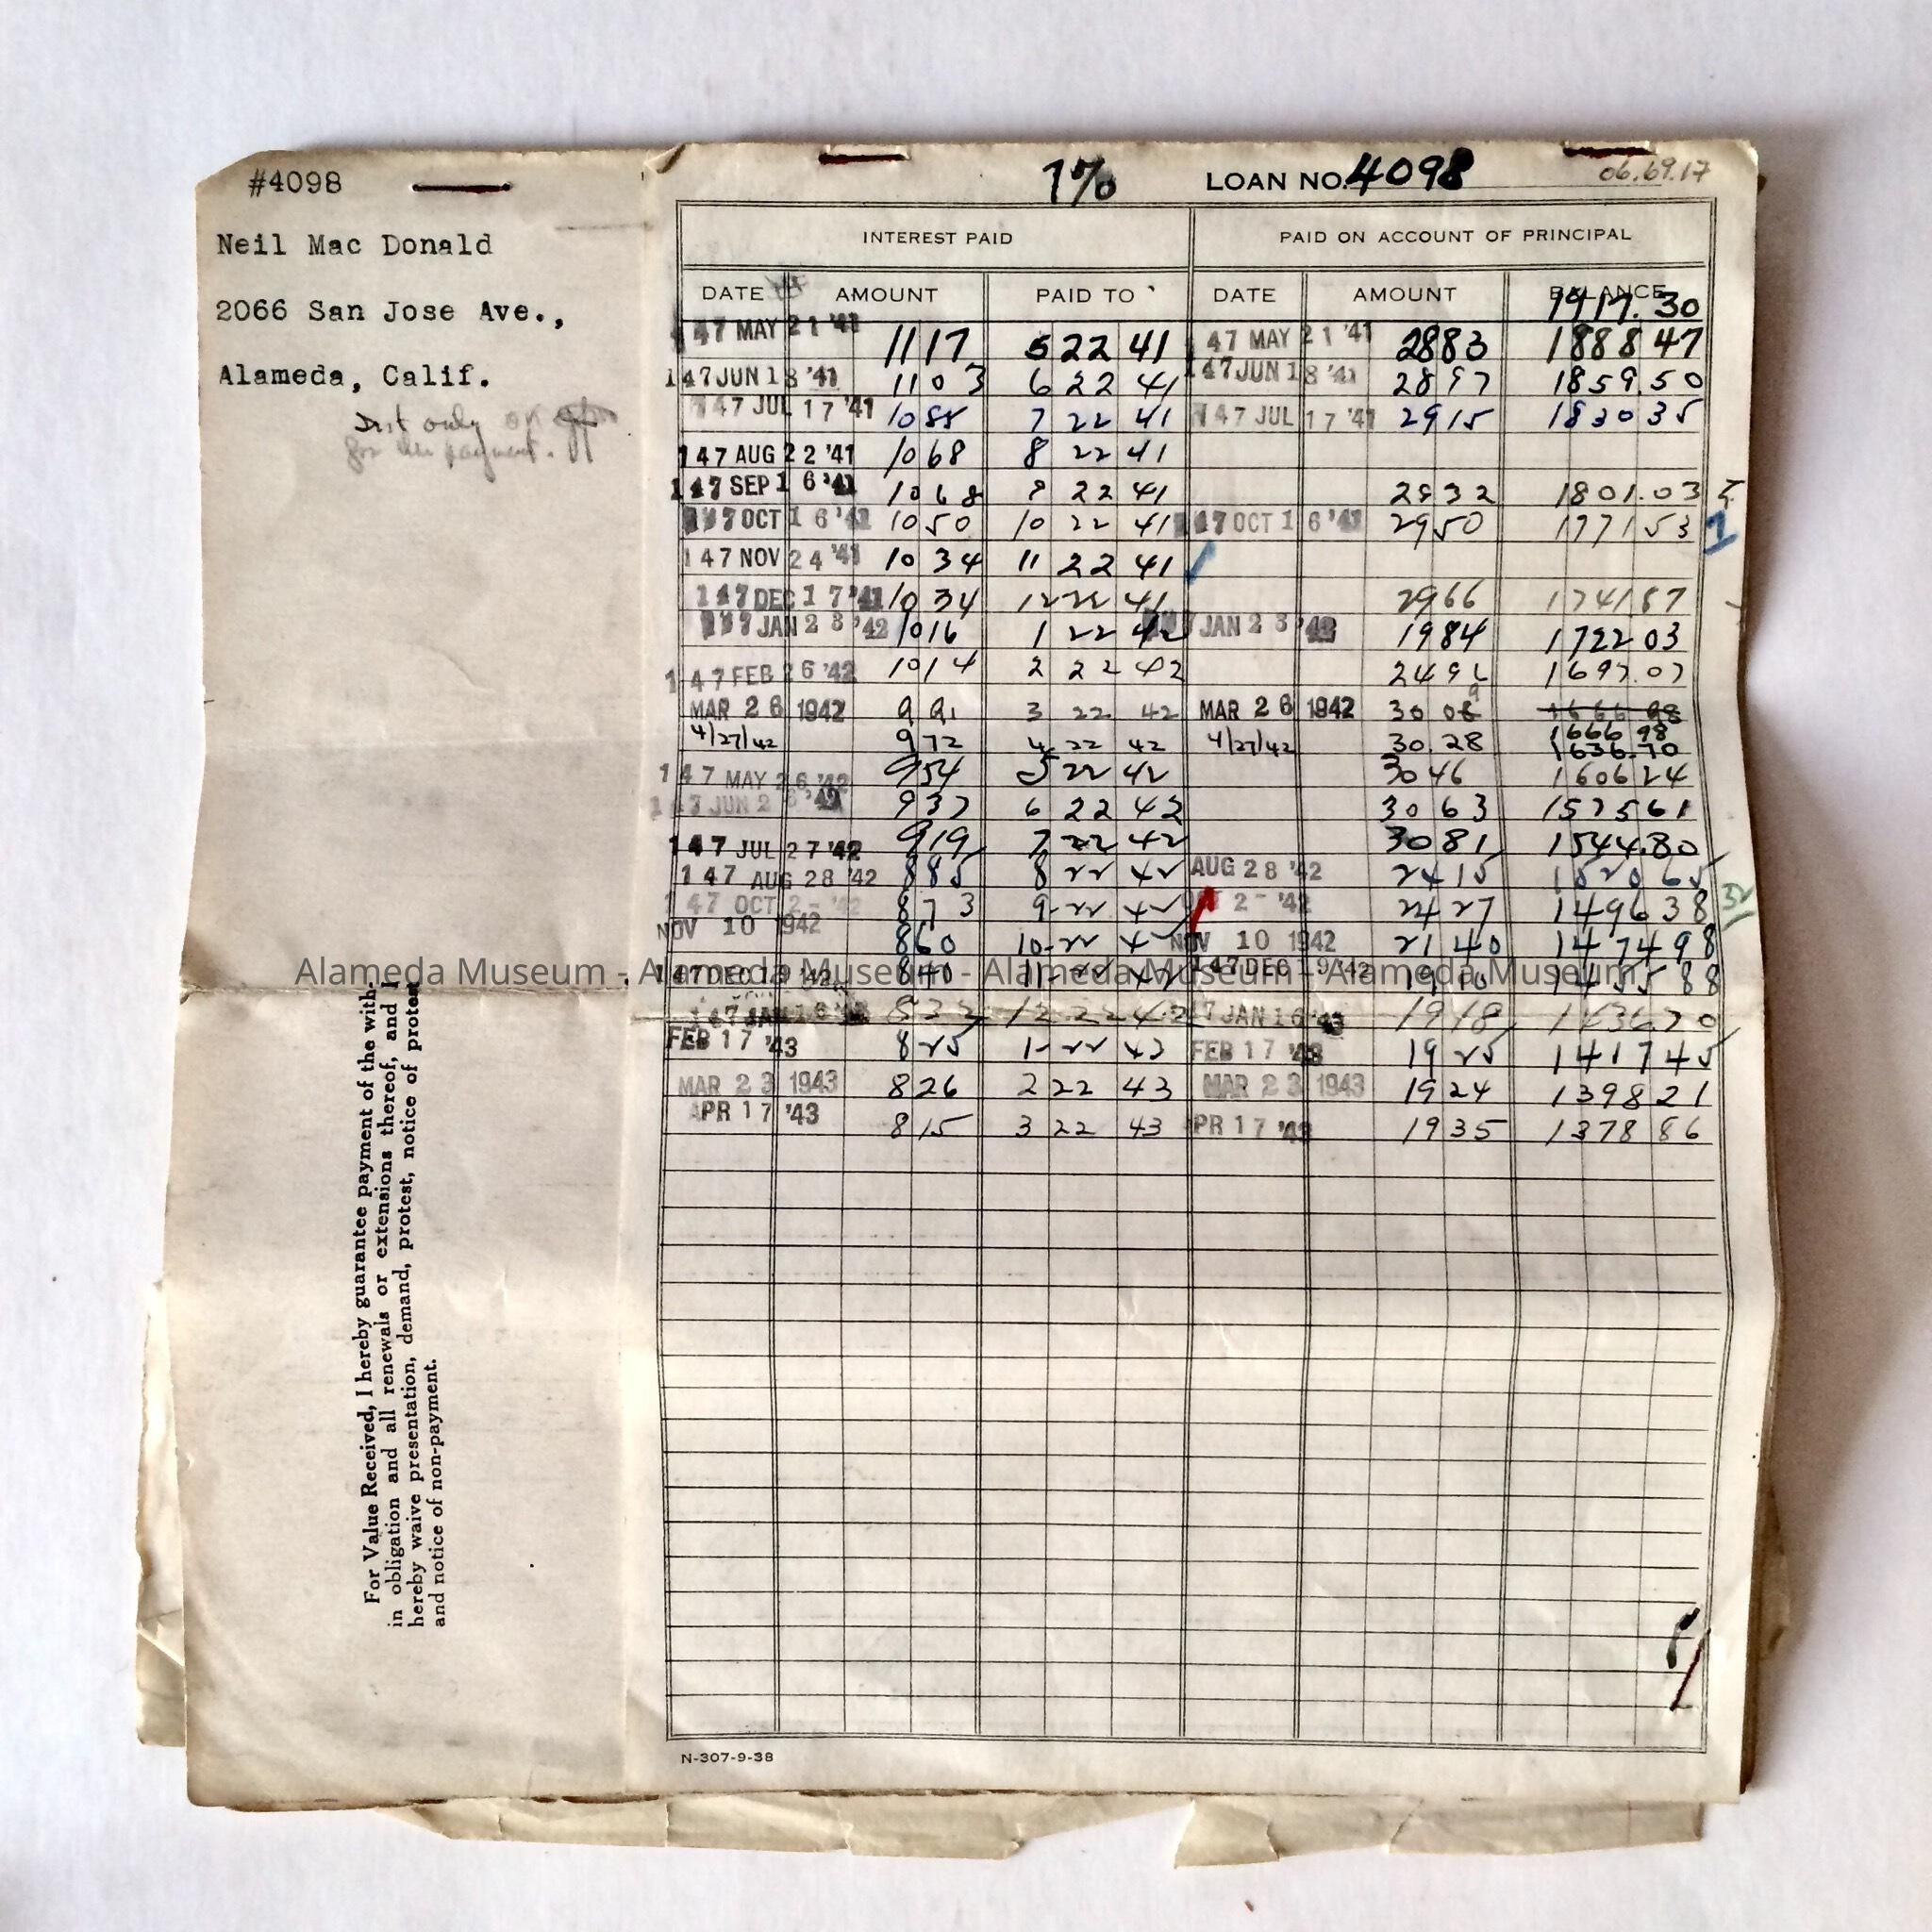 #4098
Neil Mac Donald
2066 San Jose Ave.,
Alameda, Calif.
only
7% LOAN NO. 4098 06.69.17
INTEREST PAID PAID ON ACCOUNT OF PRINCIPAL
DATE AMOUNT PAID TO DATE AMOUNT BALANCE
1917.30
147 MAY 21 '41 11 17 5 22 41 147 MAY 21 '41 28 83 1888 47
147 JUN 18 '41 11 03 6 22 41 147 JUN 18 '41 28 97 1859.50
147 JUL 17 '41 10 85 7 22 41 147 JUL 17 '41 29 15 1830 35
147 AUG 22 '41 10 68 8 22 41
147 SEP 16 '41 10 68 9 22 41 29 32 1801.03
147 OCT 16 '41 10 50 10 22 41 147 OCT 16 '41 29 50 1771 53
147 NOV 24 '41 10 34 11 22 41
147 DEC 17 '41 10 34 12 22 41 29 66 1741 87
JAN 23 '42 10 16 1 22 42 JAN 23 '42 19 84 1722 03
147 FEB 26 '42 10 14 2 22 42 24 96 1697.07
MAR 26 1942 9 91 3 22 42 MAR 26 1942 30 09 1666 98
4/27/42 9 72 4 22 42 4/27/42 30.28 1636.70
147 MAY 26 '42 9 54 5 22 42 30 46 1606 24
147 JUN 26 '42 9 37 6 22 42 30 63 1575 61
147 JUL 27 '42 9 19 7 22 42 30 81 1544.80
147 AUG 28 '42 8 85 8 22 42 AUG 28 '42 24 15 1520 65
147 OCT 2- '42 8 73 9-22 42 OCT 2- '42 24 27 1496 38
NOV 10 1942 8 60 10-22 42 NOV 10 1942 21 40 1474 98
147 DEC 19 '42 8 40 11-22 42 147 DEC 19 '42 19 10 1455 88
Alameda Museum - Alameda Museum - Alameda Museum - Alameda Museum
147 JAN 16 '43 8 22 12 22 42 147 JAN 16 '43 19 18 1436 70
FEB 17 '43 8 25 1-22 43 FEB 17 '43 19 25 1417 45
MAR 23 1943 8 26 2 22 43 MAR 23 1943 19 24 1398 21
APR 17 '43 8 15 3 22 43 APR 17 '43 19 35 1378 86
For Value Received, I hereby guarantee payment of the with-
in obligation and all renewals or extensions thereof, and I
hereby waive presentation, demand, protest, notice of protest
and notice of non-payment.
N-307-9-38